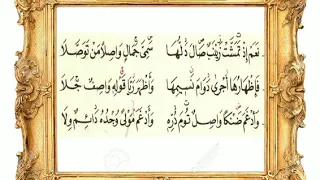 نَعَمْ إِذْ تَمَشَّتْ زَيْنَبٌ صَالَ دَلُّهَا سَمِيَّ جَمَالٍ وَاصِلًا مَنْ تَوَصَّلَا
فَإِظْهَارُهَا أَجْرَى دَوَامَ نَسِيمِهَا وَأَظْهَرَ رَيَّا قَوْلِهِ وَاصِفٌ جَلَا
وَأَدْغَمَ ضَنْكًا وَاصِلٌ تُومَ دُرِّهِ وَأَدْغَمَ مَوْلًى وُجْدُهُ دَائِمٌ وَلَا